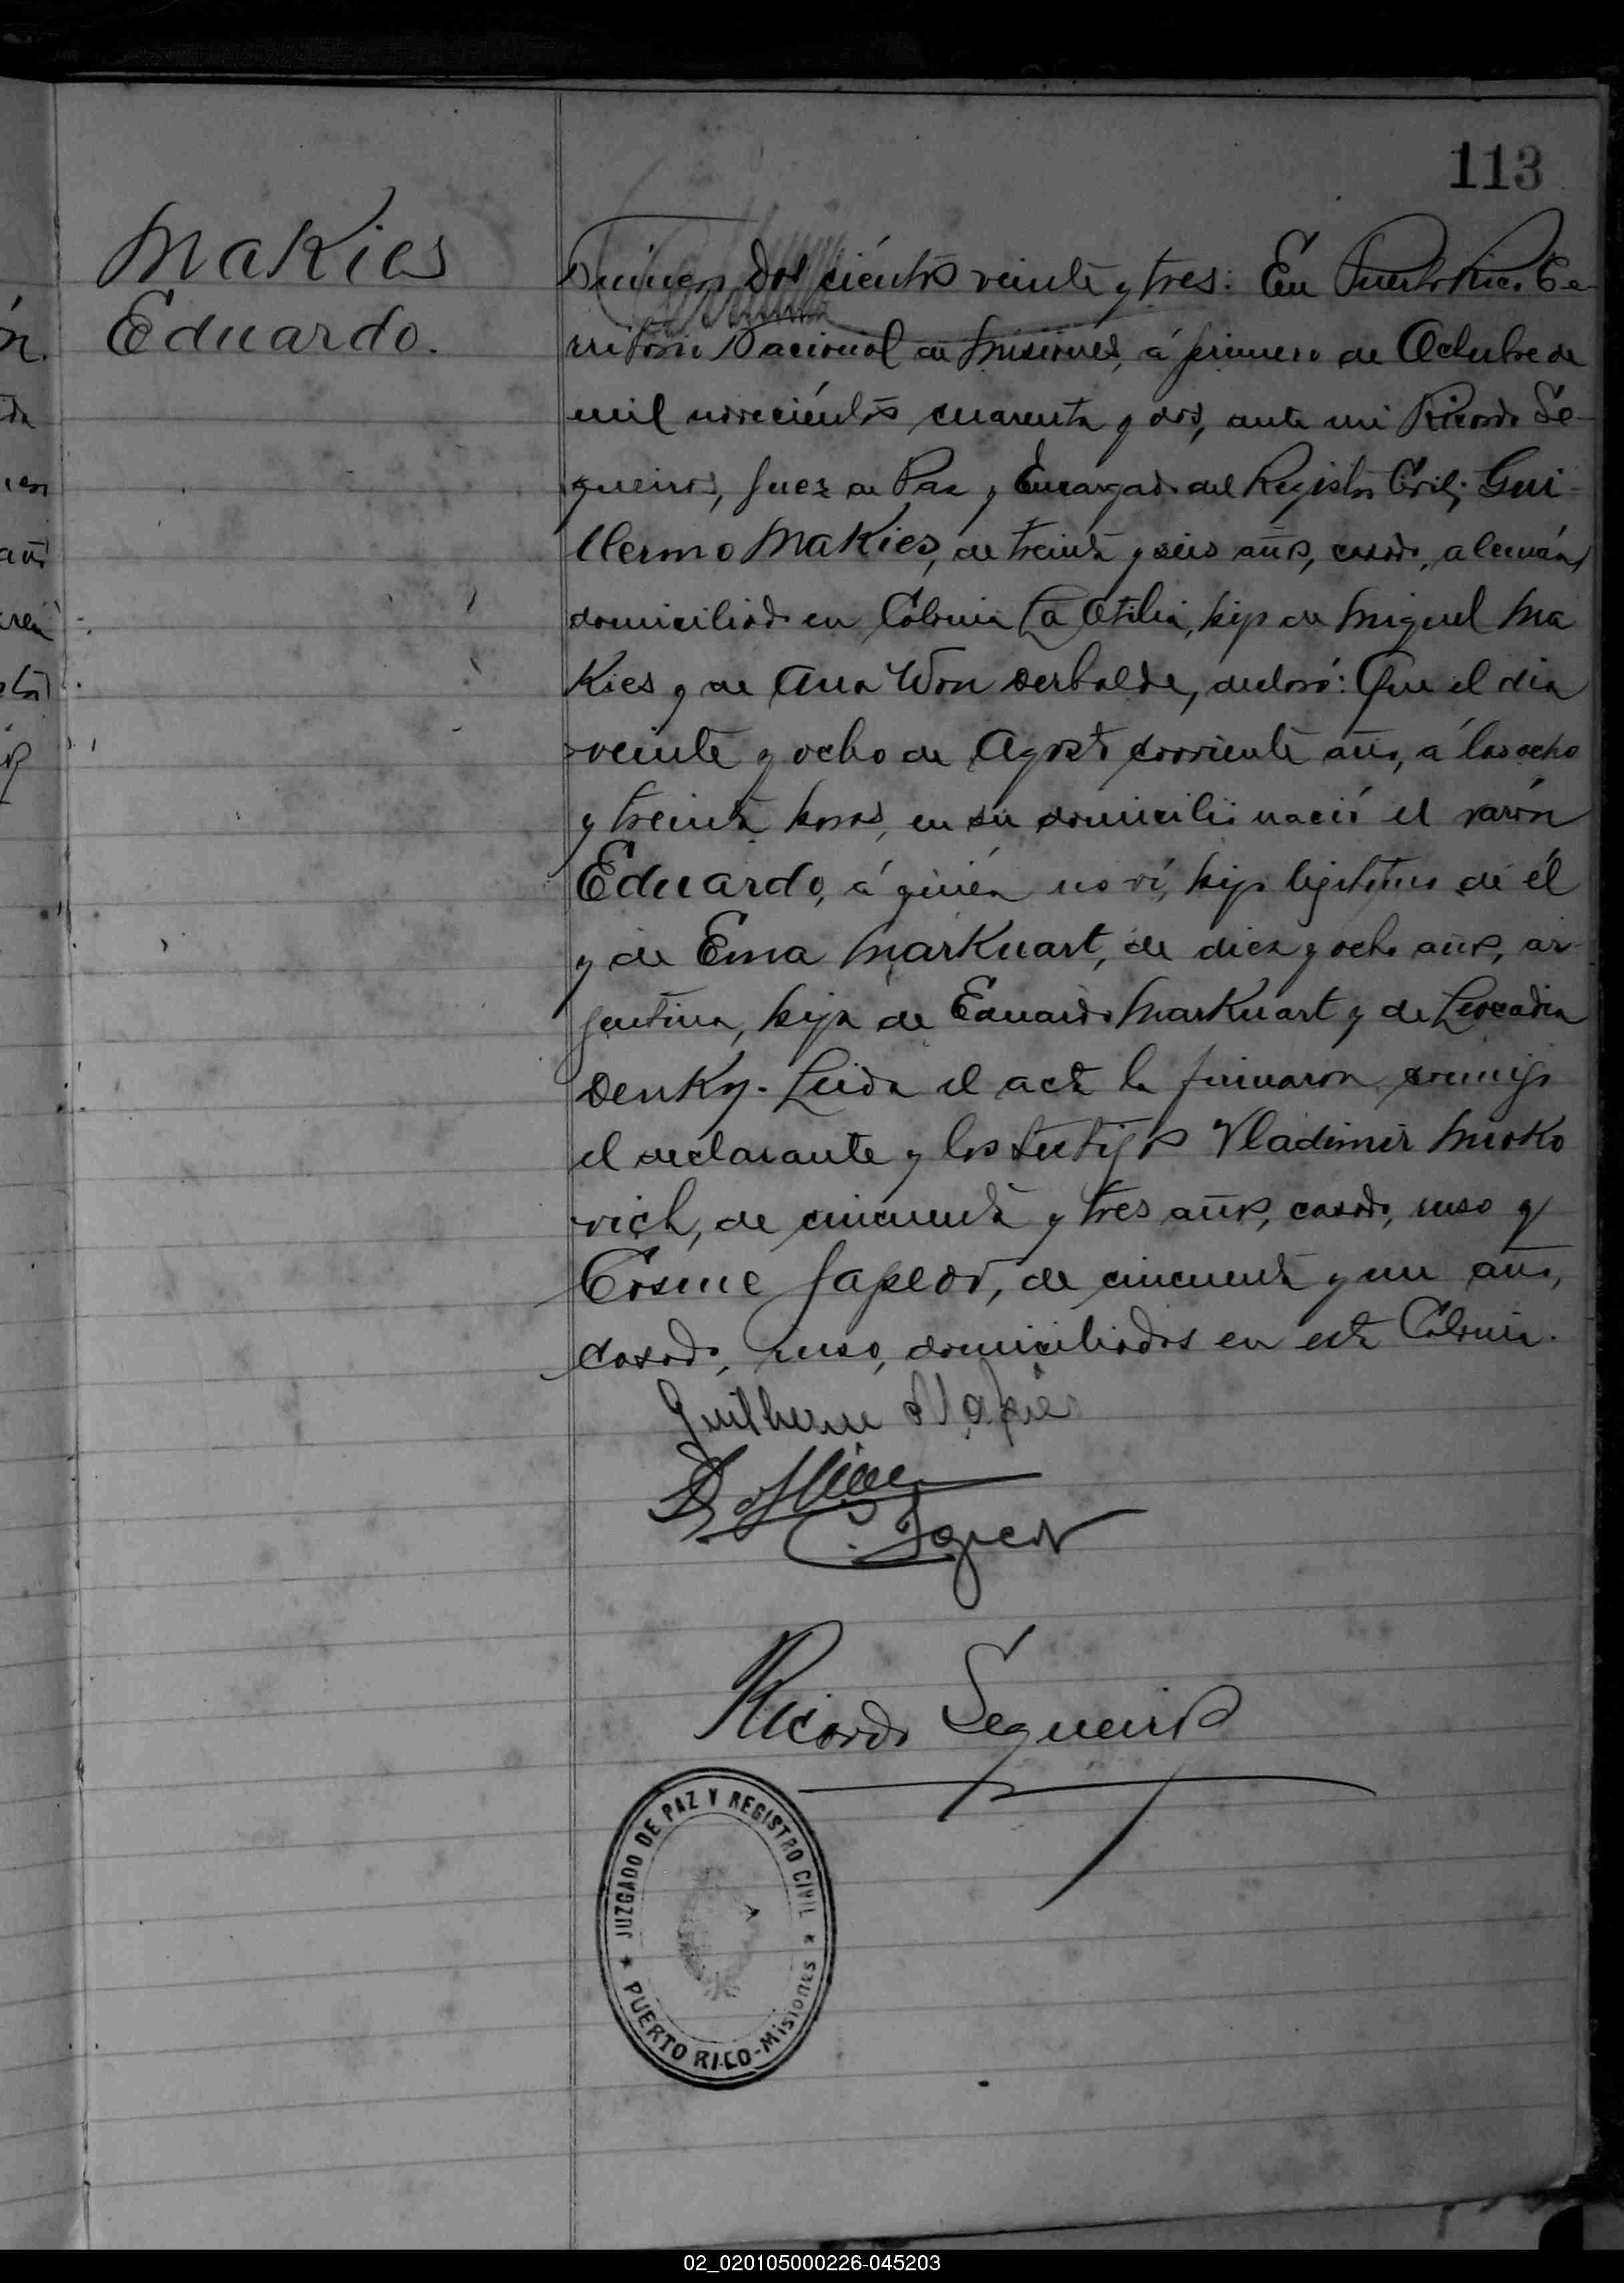 113
Makies
Eduardo.
Número Dos cientos veinte y tres: En Puerto Rico, Te-
rritorio Nacional de Misiones, á primero de Octubre de
mil novecientos cuarenta y dos, ante mi Ricardo Se-
queiros, Juez de Paz y Encargado del Registro Civil; Gui-
llermo Makies, de treinta y seis años, casado, alemán,
domiciliado en Colonia La Otilia, hijo de Miguel Ma
Kies y de Ana Won Derbalde, declaró: Que el dia
veinte y ocho de Agosto corriente año, á las ocho
y treinta horas, en su domicilio nació el varón
Eduardo, á quién no ví, hijo legítimo de él
y de Ema Markuart, de diez y ocho años, ar-
gentina, hija de Eduardo Markuart y de Leocadia
Denky. Leida el acta la firmaron conmigo
el declarante y los testigos Vladimir Miroko
vich, de cincuenta y tres años, casado, ruso y
Cosme Japedr, de cincuenta y un año,
casado, ruso, domiciliados en esta Colonia.
Guilherme Makies
Ricardo Sequeiros
JUZGADO DE PAZ Y REGISTRO CIVIL
PUERTO RICO-Misiones
02_020105000226-045203